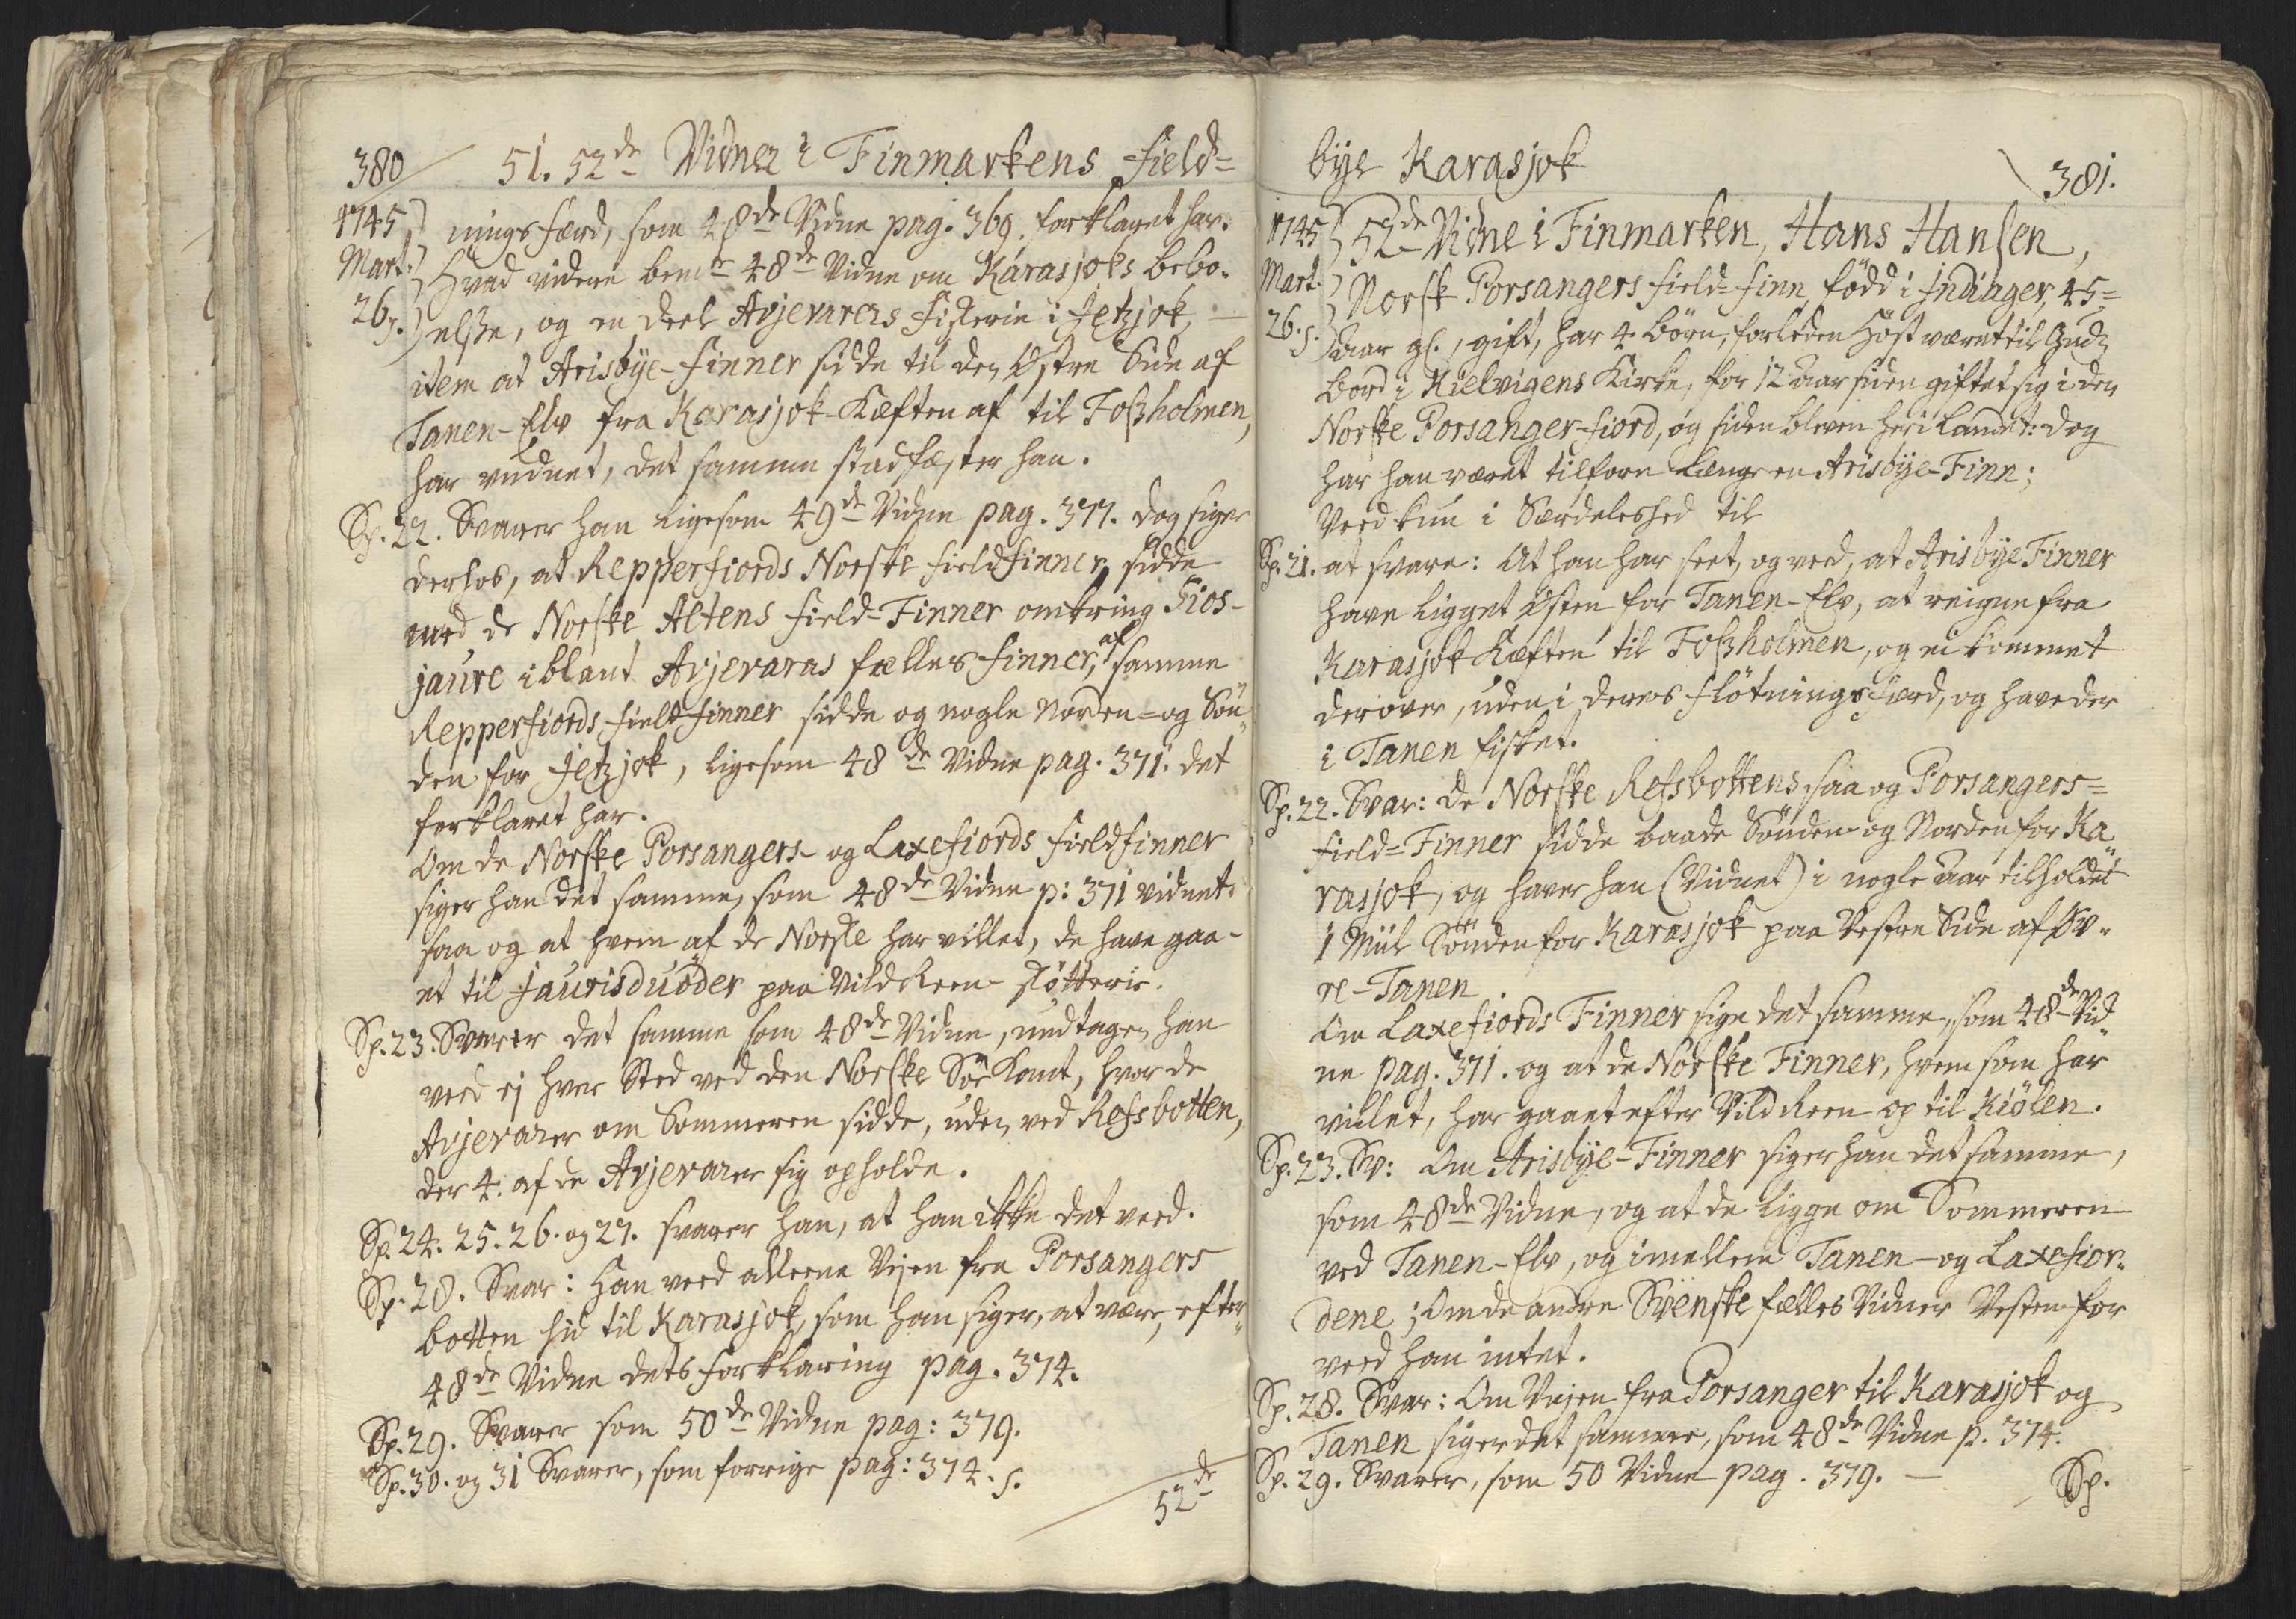 380 51. 52de Vidner i Finmarkens Field=
1745 nings færd, som 48de Vidne pag. 369. forklaret har.
Mart. Hvad videre bemte 48de Vidne om Karasjoks bebo-
26. s. else, og en deel Avjevarers Fiskerie i Jetzjok,
item at Arisbÿe-Finner sidde til den Østre Side af
Tanen-Elv fra Karasjok-Kæften af til Foßholmen,
har vudnet, det samme stadfæster han.
Sp. 22. Svarer han ligesom 49de Vidne pag. 377. dog siger
derhos, at Repperfiords Norske fieldfinner sidde
med de Norske Altens Field-Finner omkring Jios-
jaure iblant Avjevaras fælles Finner, af samme
Repperfiords fieldfinner sidde og nogle Norden= og Sön-
den for Jetzjok, ligesom 48de Vidne pag. 371. det
forklaret har.
Om de Norske Porsangers- og Laxefiords Fieldfinner
siger han det samme, som 48de Vidne p: 371 vidnet.
saa og at hvem af de Norske har villet, de have gaa-
et til Jaurisduøder paa Vild Reen-skötterie.
Sp. 23. Svarer det samme som 48de Vidne, undtagen han
veed ej hver Sted ved den Norske Söe Kant, hvor de
Avjevarer om Sommeren sidde, uden ved Refsbotten,
der 4. af de Avjevarer sig opholde.
Sp. 24. 25. 26. og 27. svarer han, at han ikke det veed.
Sp. 28. Svar: Han veed alleene Vejen fra Porsangers
botten hid til Karasjok, som han siger, at være, efter
48de Vidne dets forklaring pag. 374.
Sp. 29. Svarer som 50de Vidne pag: 379.
Sp. 30. og 31 Svarer, som forrige pag: 374. s.
52de
bÿe Karasjok 381.
1745 52de Vidne i Finmarken, Hans Hansen,
Mart. Norsk Porsangers field-finn, född i Indiager, 45=
26. s. aar gl., gift, har 4. börn, forleden Höst været til Guds
bord i Kielvigens Kirke, for 12 aar siden giftet sig i den
Norske Porsanger-fiord, og siden bleven her i Landet: dog
har han været tilforn længe en Arisbÿe-Finn;
Veed kun i Særdeleshed til
Sp. 21. at svare: At han har seet, og ved, at Arisbÿe Finner
have ligget Østen for Tanen-Elv, at reigne fra
Karasjok Kæften til Foßholmen, og ei kommet
derover, uden i deres flötnings færd, og have der
i Tanen fisket.
Sp. 22. Svar: de Norske Refsbottens saa og Porsangers=
Field=Finner sidde baade Sönden- og Norden for Ka-
rasjok, og haver han (Vidnet) i nogle aar tilholdet
1 Miil Sönden for Karasjok paa Vestre Side af Öv-
re-Tanen.
Om Laxefiords Finner sige det samme, som 48de Vid-
ne pag. 371. og at de Norske Finner, hvem som har
villet, har gaaet efter Vild Reen op til Kiölen.
Sp. 23. Sv: Om Arisbÿe-Finner siger han det samme,
som 48de Vidne, og at de ligge om Sommeren
ved Tanen-Elv, og imellem Tanen- og Laxefior-
dene; Om de andre Svenske fælles Vidner Vesten for
veed han intet.
Sp. 28. Svar: Om Vejen fra Porsanger til Karasjok og
Tanen siger det samme, som 48de Vidne p. 374.
Sp. 29. Svarer, som 50 Vidne pag. 379. —
Sp.